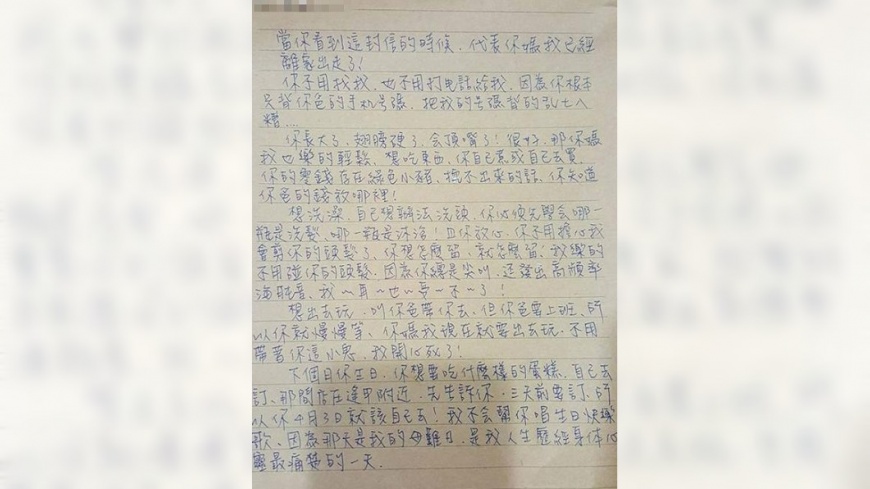 當你看到這封信的時候，代表你媽我已經
離家出走了！
你不用找我，也不用打電話給我，因為你根本
只背你爸的手机号碼，把我的号碼背的乱七八
糟....
你長大了，翅膀硬了，会頂嘴了！很好，那你媽
我也樂的輕鬆，想吃東西，你自己煮或自己去買，
你的零錢存在綠色小豬，摳不出來的話，你知道
你爸的錢放哪裡！
想洗澡，自己想辦法洗頭，你必須先學会哪一
瓶是洗髮、哪一瓶是沐浴！且你放心，你不用擔心我
會剪你的頭髮了，你想怎麼留，就怎麼留，我樂的
不用碰你的頭髮，因為你總是尖叫，还發出高頻率
海豚音，我～再～也～受～不～了！
想出去玩，叫你爸帶你去，但你爸要上班，所
以你就慢慢等，你媽我現在就要出去玩，不用
帶著你這小鬼，我開心死了！
下個月你生日，你想要吃什麼樣的蛋糕，自己去
訂，那間店在逢甲附近，先告訴你，三天前要訂，所
以你4月3日就該自己去！我不会幫你唱生日快樂
歌，因為那天是我的母難日，是我人生歷經身体心
靈最痛楚的一天.